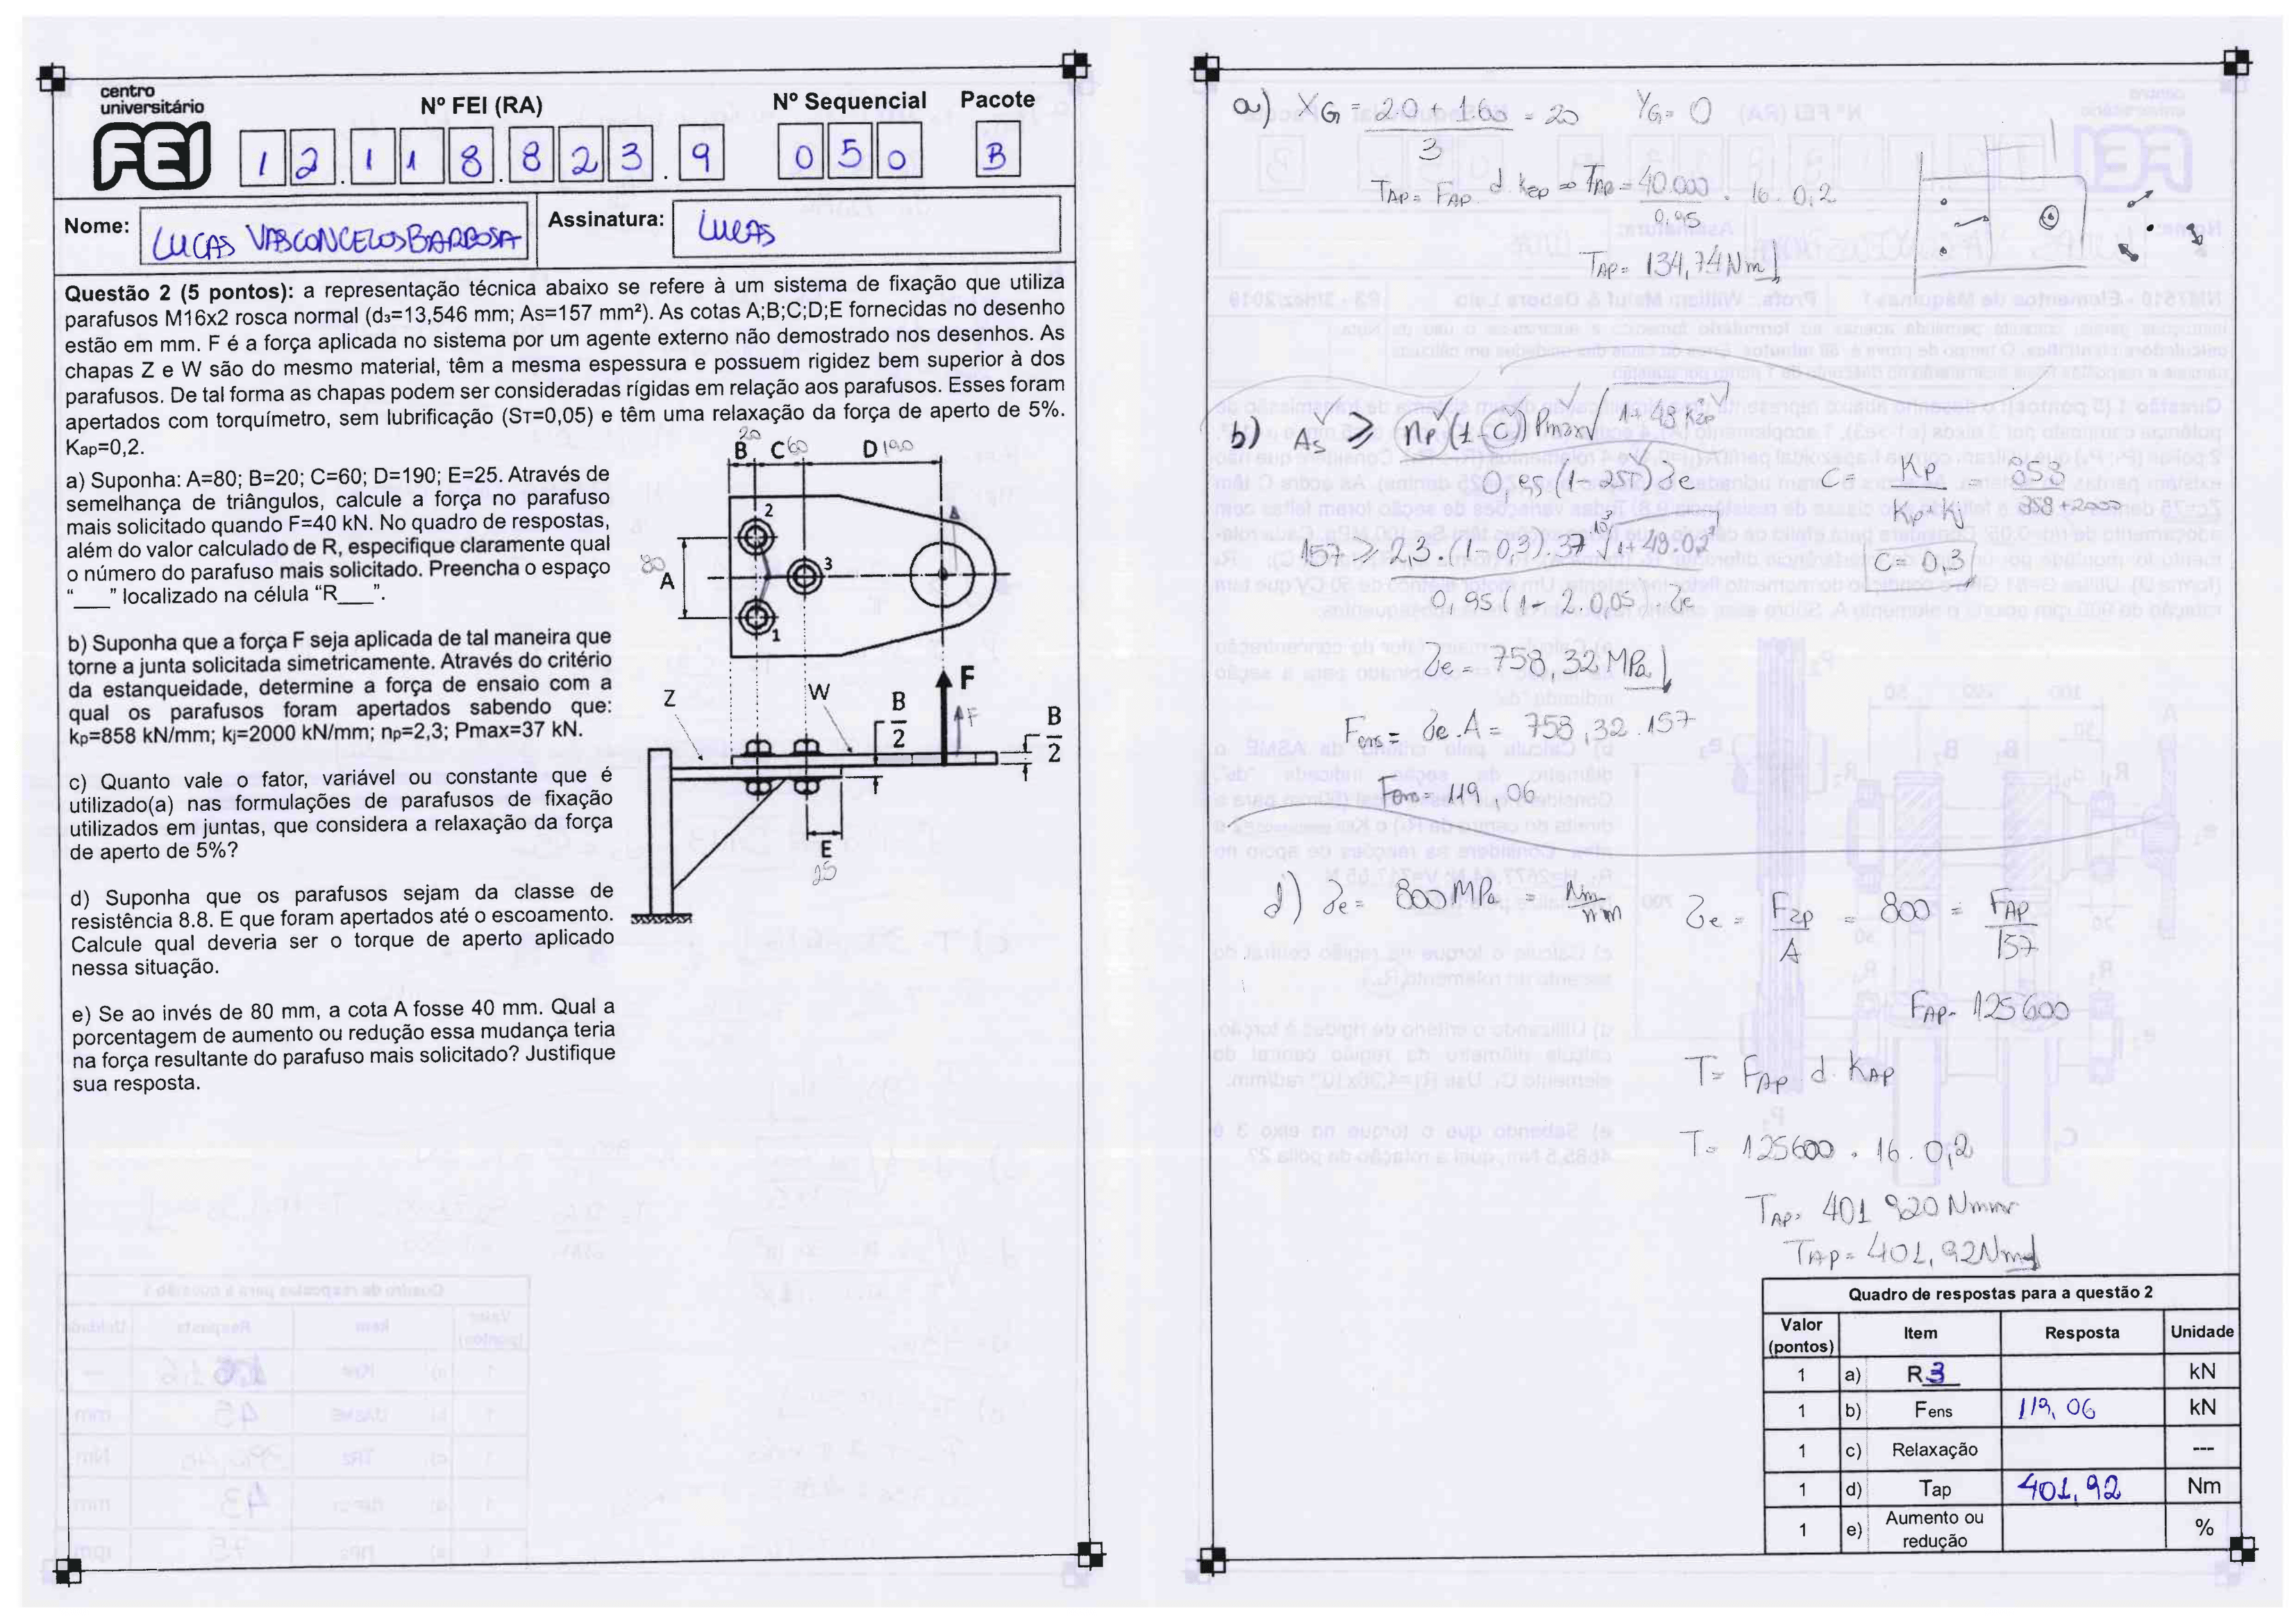 centro
universitário
FEI
Nº FEI (RA)
Nº Sequencial
Pacote
12.118.823.9
050
B
Nome:
LUCAS VASCONCELOS BARBOSA
Assinatura:
LUCAS
Questão 2 (5 pontos): a representação técnica abaixo se refere à um sistema de fixação que utiliza
parafusos M16x2 rosca normal (d₃=13,546 mm; As=157 mm²). As cotas A;B;C;D;E fornecidas no desenho
estão em mm. F é a força aplicada no sistema por um agente externo não demostrado nos desenhos. As
chapas Z e W são do mesmo material, têm a mesma espessura e possuem rigidez bem superior à dos
parafusos. De tal forma as chapas podem ser consideradas rígidas em relação aos parafusos. Esses foram
apertados com torquímetro, sem lubrificação (Sᴛ=0,05) e têm uma relaxação da força de aperto de 5%.
Kap=0,2.
a) Suponha: A=80; B=20; C=60; D=190; E=25. Através de
semelhança de triângulos, calcule a força no parafuso
mais solicitado quando F=40 kN. No quadro de respostas,
além do valor calculado de R, especifique claramente qual
o número do parafuso mais solicitado. Preencha o espaço
"___" localizado na célula "R___".
b) Suponha que a força F seja aplicada de tal maneira que
torne a junta solicitada simetricamente. Através do critério
da estanqueidade, determine a força de ensaio com a
qual os parafusos foram apertados sabendo que:
kp=858 kN/mm; kj=2000 kN/mm; np=2,3; Pmax=37 kN.
c) Quanto vale o fator, variável ou constante que é
utilizado(a) nas formulações de parafusos de fixação
utilizados em juntas, que considera a relaxação da força
de aperto de 5%?
d) Suponha que os parafusos sejam da classe de
resistência 8.8. E que foram apertados até o escoamento.
Calcule qual deveria ser o torque de aperto aplicado
nessa situação.
e) Se ao invés de 80 mm, a cota A fosse 40 mm. Qual a
porcentagem de aumento ou redução essa mudança teria
na força resultante do parafuso mais solicitado? Justifique
sua resposta.
20
B C 60 D 190
2
80
A
3
1
Z
W
B
2
F
F
B
2
E
25
a) XG = 20 + 160 = 20 YG = 0
3
TAP = FAP. d. kap => TAP = 40.000 . 16. 0,2
0,95
TAP = 134,74 Nm
b) As ≥ np (1-C) Pmax √1+48 K²ap
0,95 (1-2ST) δe
C = Kp = 858
Kp+Kj 858+2000
157 ≥ 2,3. (1-0,3). 37 10³ √1+48.02²
C = 0,3
0,95 (1-2.0,05). δe
δe = 758,32 MPa
Fens = δe. A = 758,32. 157
Fens = 119,06
d) δe = 800 MPa = Nm
mm
δe = Fap = 800 = FAP
A 157
FAP = 125600
T = FAP. d. KAP
T = 125600. 16. 0,2
TAP = 401 920 Nmm
TAP = 401,92 Nm
Quadro de respostas para a questão 2
Valor (pontos) Item Resposta Unidade
1 a) R 3 kN
1 b) Fens 119,06 kN
1 c) Relaxação ---
1 d) Tap 401,92 Nm
1 e) Aumento ou redução %